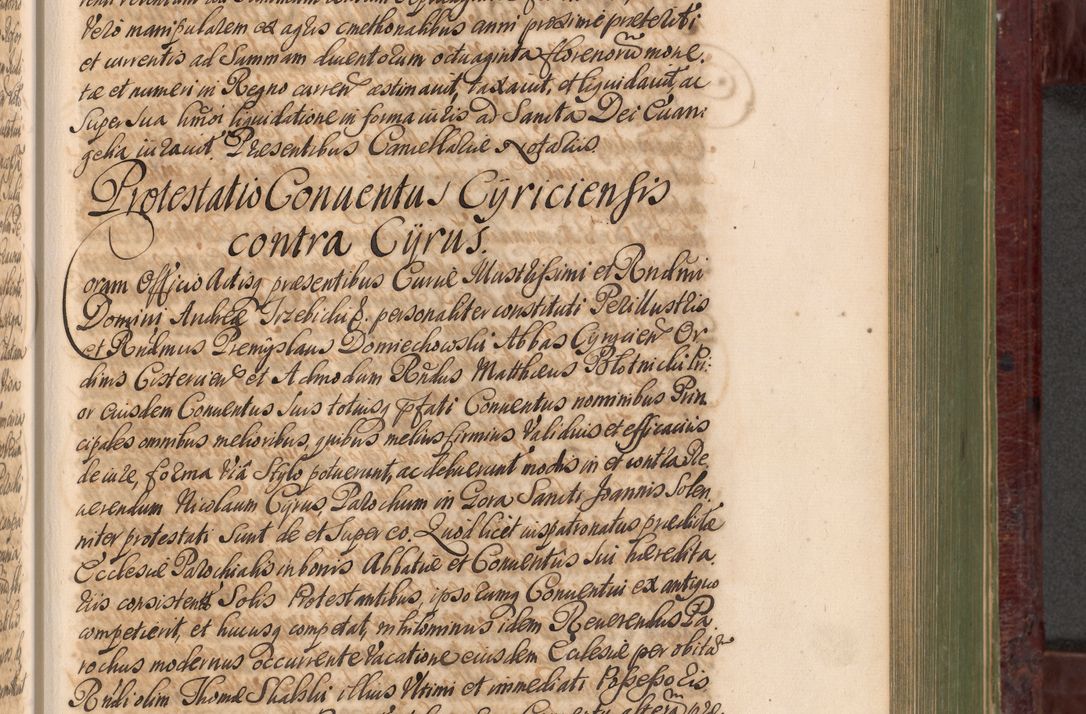 vero manipularem ex agris cmethonalibus anni proxime præteriti
et currentis ad Summam ducentorum octuaginta florenorũ mone
tæ et numeri in Regno curren̄ æstimavit, taxavit, et liquidavit, ac
super sua hmõi liquidatione in forma iuris ad Sancta Dei Evan
gelia iuravit. Præsentibus Cancellariæ Notariis.
Protestatio Conventus Cÿriciensis
contra Cÿrus.
Coram Officio Actisq præsentibus Curiæ Illustrissimi et Rndmi
Domini Andreæ Trzebicki E. personaliter constituti Perillustris
et Rndmus Premÿslaus Domiechowski Abbas Cÿricien̄ Or
dinis Cistercien̄ et Admodum Rndus Matthæus Błotnicki Pri:
or eiusdem Conventus suis totiusq pfati Conventus nominibus Prin
cipales omnibus melioribus, quibus melius firmius validius et efficacius
de iure, forma viâ Stÿlo potuerunt, ac debuerunt modis in et contra Re
verendum Nicolaum Cÿrus, Parochum in Gora Sancti Joannis Solen
niter protestati sunt de et super eo. Quod licet ius patronatus prædictæ
Ecclesiæ Parochialis in bonis Abbatiæ et Conventûs sui hæredita
riis consisten̄ Solis Protestantibus, ipsorumq Conventui ex antiquo
competierit, et hucusq competat, nihilominus idem Reverendus Pa
rochus modernus occurrente vacatione eiusdem Ecclesiæ per obitũ
Rndi olim Thomæ Skalski illius Ultimi et immediati Possessoris